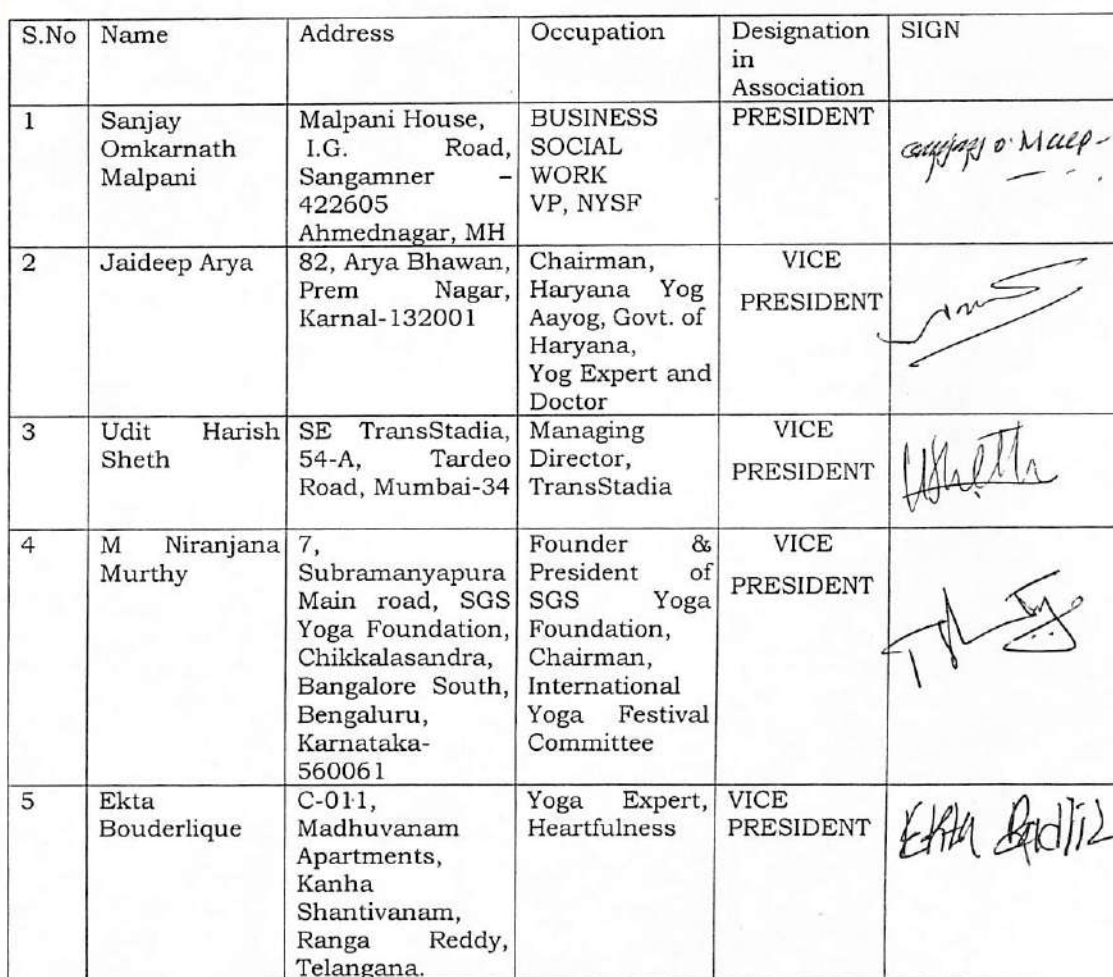 S.No
Name
Address
Occupation
Designation
in
Association
SIGN
1
Sanjay
Omkarnath
Malpani
Malpani House,
I.G. Road,
Sangamner –
422605
Ahmednagar, MH
BUSINESS
SOCIAL
WORK
VP, NYSF
PRESIDENT
2
Jaideep Arya
82, Arya Bhawan,
Prem Nagar,
Karnal-132001
Chairman,
Haryana Yog
Aayog, Govt. of
Haryana,
Yog Expert and
Doctor
VICE
PRESIDENT
3
Udit Harish
Sheth
SE TransStadia,
54-A, Tardeo
Road, Mumbai-34
Managing
Director,
TransStadia
VICE
PRESIDENT
4
M Niranjana
Murthy
7,
Subramanyapura
Main road, SGS
Yoga Foundation,
Chikkalasandra,
Bangalore South,
Bengaluru,
Karnataka-
560061
Founder &
President of
SGS Yoga
Foundation,
Chairman,
International
Yoga Festival
Committee
VICE
PRESIDENT
5
Ekta
Bouderlique
C-011,
Madhuvanam
Apartments,
Kanha
Shantivanam,
Ranga Reddy,
Telangana.
Yoga Expert,
Heartfulness
VICE
PRESIDENT
Ekta